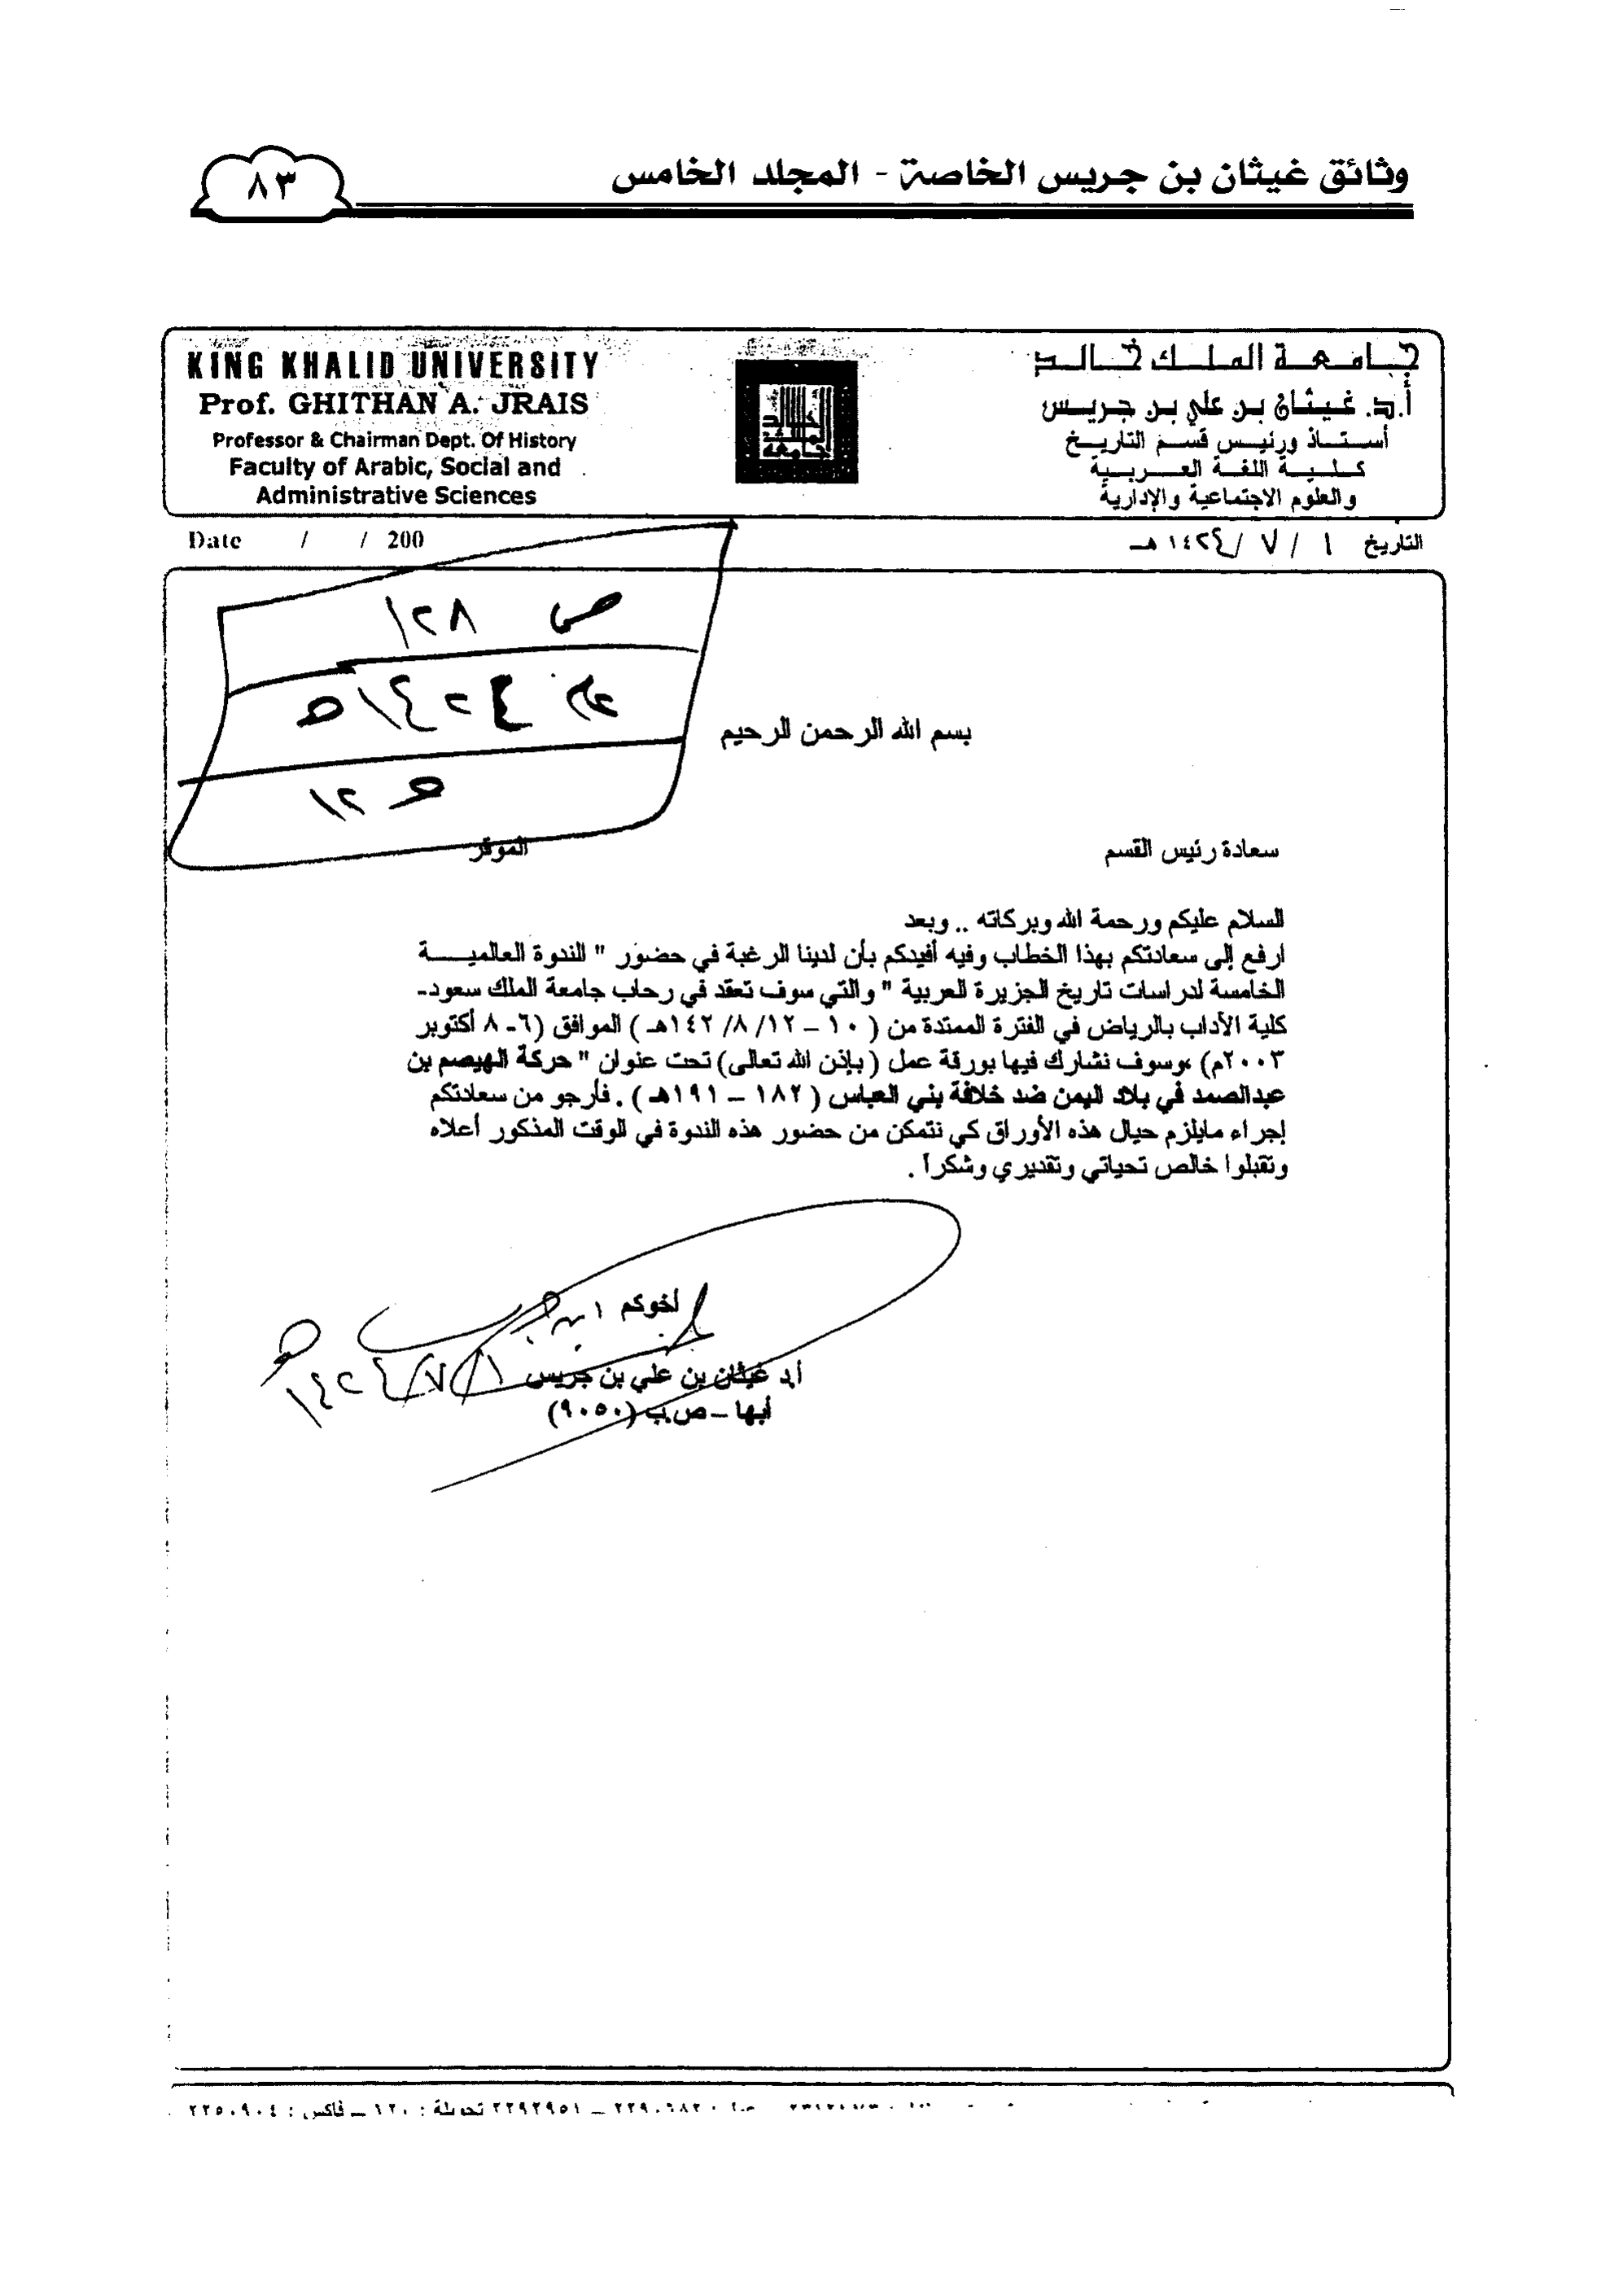 وثائق غيثان بن جريس الخاصة - المجلد الخامس
٨٣
KING KHALID UNIVERSITY
Prof. GHITHAN A. JRAIS
Professor & Chairman Dept. Of History
Faculty of Arabic, Social and
Administrative Sciences
جامعة الملك خالد
أ.د. غيثان بن علي بن جريس
أستاذ ورئيس قسم التاريخ
كلية اللغة العربية
والعلوم الاجتماعية والإدارية
Date / / 200
التاريخ ١ / ٧ / ١٤٢٤ هـ
ص ١٢٨
عام ١٤٢٤ هـ
١٢
بسم الله الرحمن الرحيم
سعادة رئيس القسم الموقر
السلام عليكم ورحمة الله وبركاته .. وبعد
ارفع إلى سعادتكم بهذا الخطاب وفيه أفيدكم بأن لدينا الرغبة في حضور " الندوة العالمية
الخامسة لدراسات تاريخ الجزيرة العربية " والتي سوف تعقد في رحاب جامعة الملك سعود-
كلية الآداب بالرياض في الفترة الممتدة من ( ١٠ – ١٢/ ٨/ ١٤٢هـ ) الموافق (٦- ٨ أكتوبر
٢٠٠٣م) ،وسوف نشارك فيها بورقة عمل ( بإذن الله تعالى) تحت عنوان " حركة الهيصم بن
عبدالصمد في بلاد اليمن ضد خلافة بني العباس ( ١٨٢ – ١٩١هـ ) . فأرجو من سعادتكم
إجراء مايلزم حيال هذه الأوراق كي نتمكن من حضور هذه الندوة في الوقت المذكور أعلاه
وتقبلوا خالص تحياتي وتقديري وشكراً .
أخوكم
أ.د غيثان بن علي بن جريس
١٤٢٤/٧/١ هـ
أبها – ص.ب (٩٠٥٠)
٢٢٩٠٦٨٢ – ٢٢٩٢٩٥١ تحويلة : ١٢٠ – فاكس : ٢٢٥٠٩٠٤